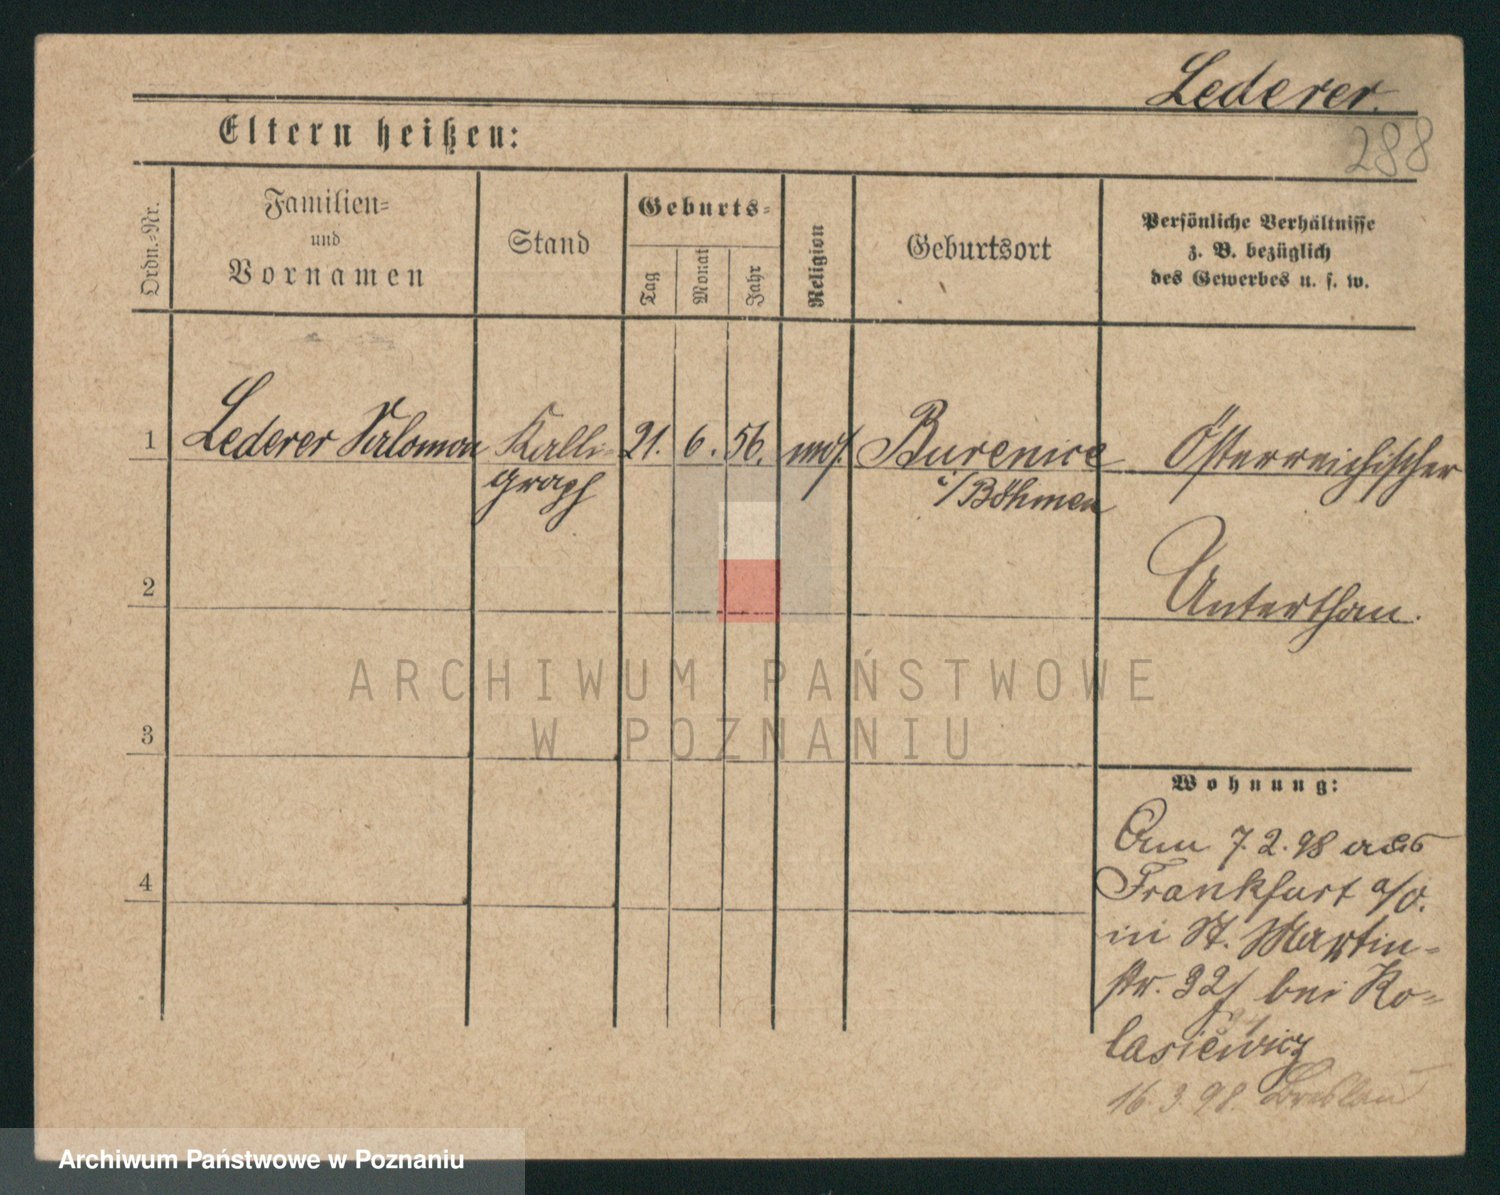 Lederer.
288
Eltern heißen:
Ordn.-Nr.
Familien-
und
Vornamen
Stand
Geburts-
Tag
Monat
Jahr
Religion
Geburtsort
Persönliche Verhältnisse
z. B. bezüglich
des Gewerbes u. s. w.
1 Lederer Salomon Kalli- 21. 6. 56. mos. Burenice Österreichischer
graph i/Böhmen
2 Unterthan.
3
Wohnung:
Am 7.2.98 aus
4 Frankfurt a/O.
in St. Martin-
str. 32 bei Ko-
lasiewicz
16.3.98. Breslau
ARCHIWUM PAŃSTWOWE
W POZNANIU
Archiwum Państwowe w Poznaniu